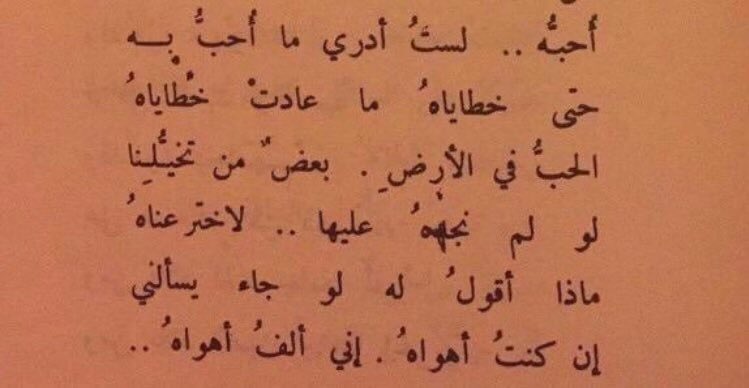 أُحبُّه .. لستُ أدري ما أُحبُّ بِـه
حتى خطاياهُ ما عادتْ خطاياهُ
الحبُّ في الأرضِ . بعضٌ من تخيـُّلـِنا
لو لم نجدْهُ عليها .. لاخترعناهُ
ماذا أقولُ له لو جاء يسألني
إن كنتُ أهواهُ . إني ألفُ أهواهُ ..